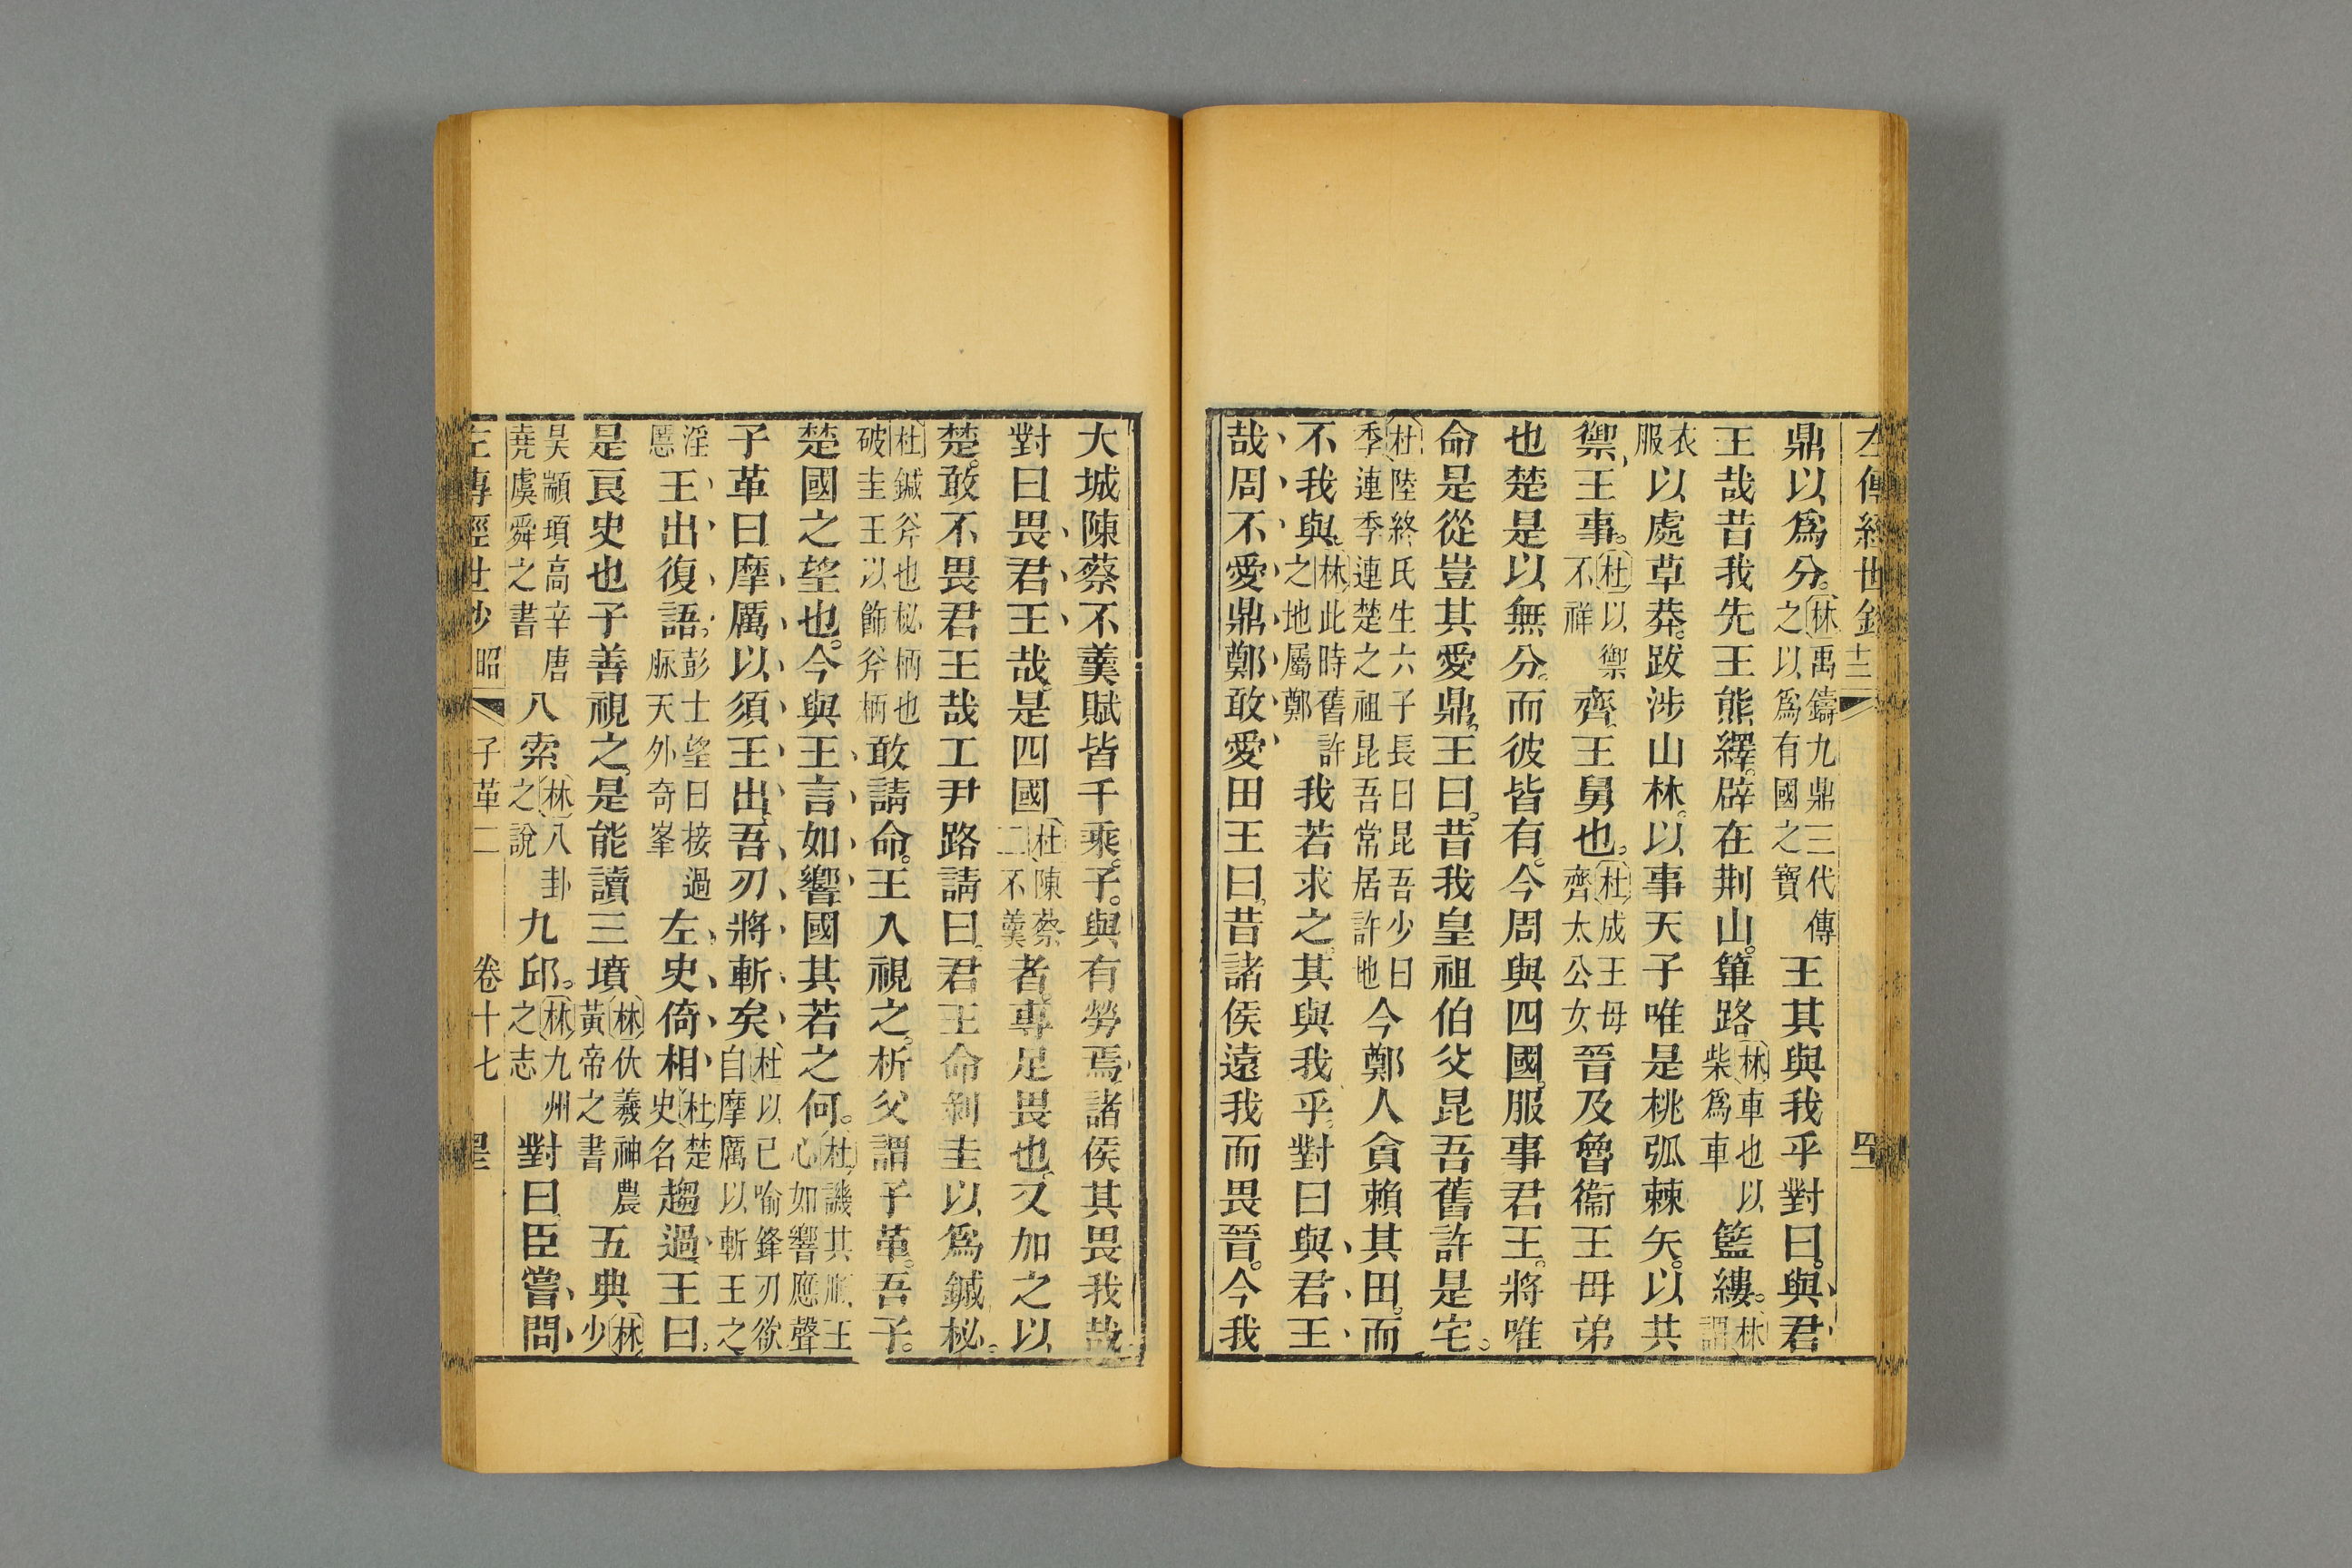 左傳經世鈔 十二
鼎以爲分。林禹鑄九鼎三代傳之以爲有國之寶王其與我乎對曰。與君
王哉昔我先王熊繹。辟在荆山。篳路林車也以柴爲車籃縷。林謂
衣服以處草莽。跋涉山林。以事天子唯是桃弧棘矢。以共
禦王事。杜以禦不祥齊王舅也。杜成王母齊太公女晉及魯衞王母弟
也楚是以無分。而彼皆有。今周與四國。服事君王。將唯
命是從豈其愛鼎。王曰。昔我皇祖伯父昆吾舊許是宅。
杜陸終氏生六子長曰昆吾少曰季連季連楚之祖昆吾常居許地今鄭人貪賴其田。而
不我與。林此時舊許之地屬鄭我若求之。其與我乎。對曰與君王
哉周不愛鼎鄭敢愛田王曰。昔諸侯遠我而畏晉。今我
大城陳蔡不羹賦皆千乘。子。與有勞焉。諸侯其畏我哉
對曰畏君王哉。是四國杜陳蔡二不羹者。專足畏也。又加之以
楚。敢不畏君王哉工尹路請曰。君王命剥圭以爲鏚柲。
杜鏚斧也柲柄也破圭玉以飾斧柄敢請命。王入視之。析父謂子革。吾子。
楚國之望也。今與王言如響國其若之何。杜譏其順王心如響應聲
子革曰摩厲以須王出。吾刃將斬矣杜以已喻鋒刃欲自摩厲以斬王之
淫慝王出復語。彭士望曰接過脉天外奇峯左史倚相杜楚史名趨過王曰。
是良史也子善視之。是能讀三墳林伏羲神農黃帝之書五典林少
昊顓頊高辛唐堯虞舜之書八索林八卦之說九邱。林九州之志對曰。臣嘗問
左傳經世鈔 昭 子革二 卷十七